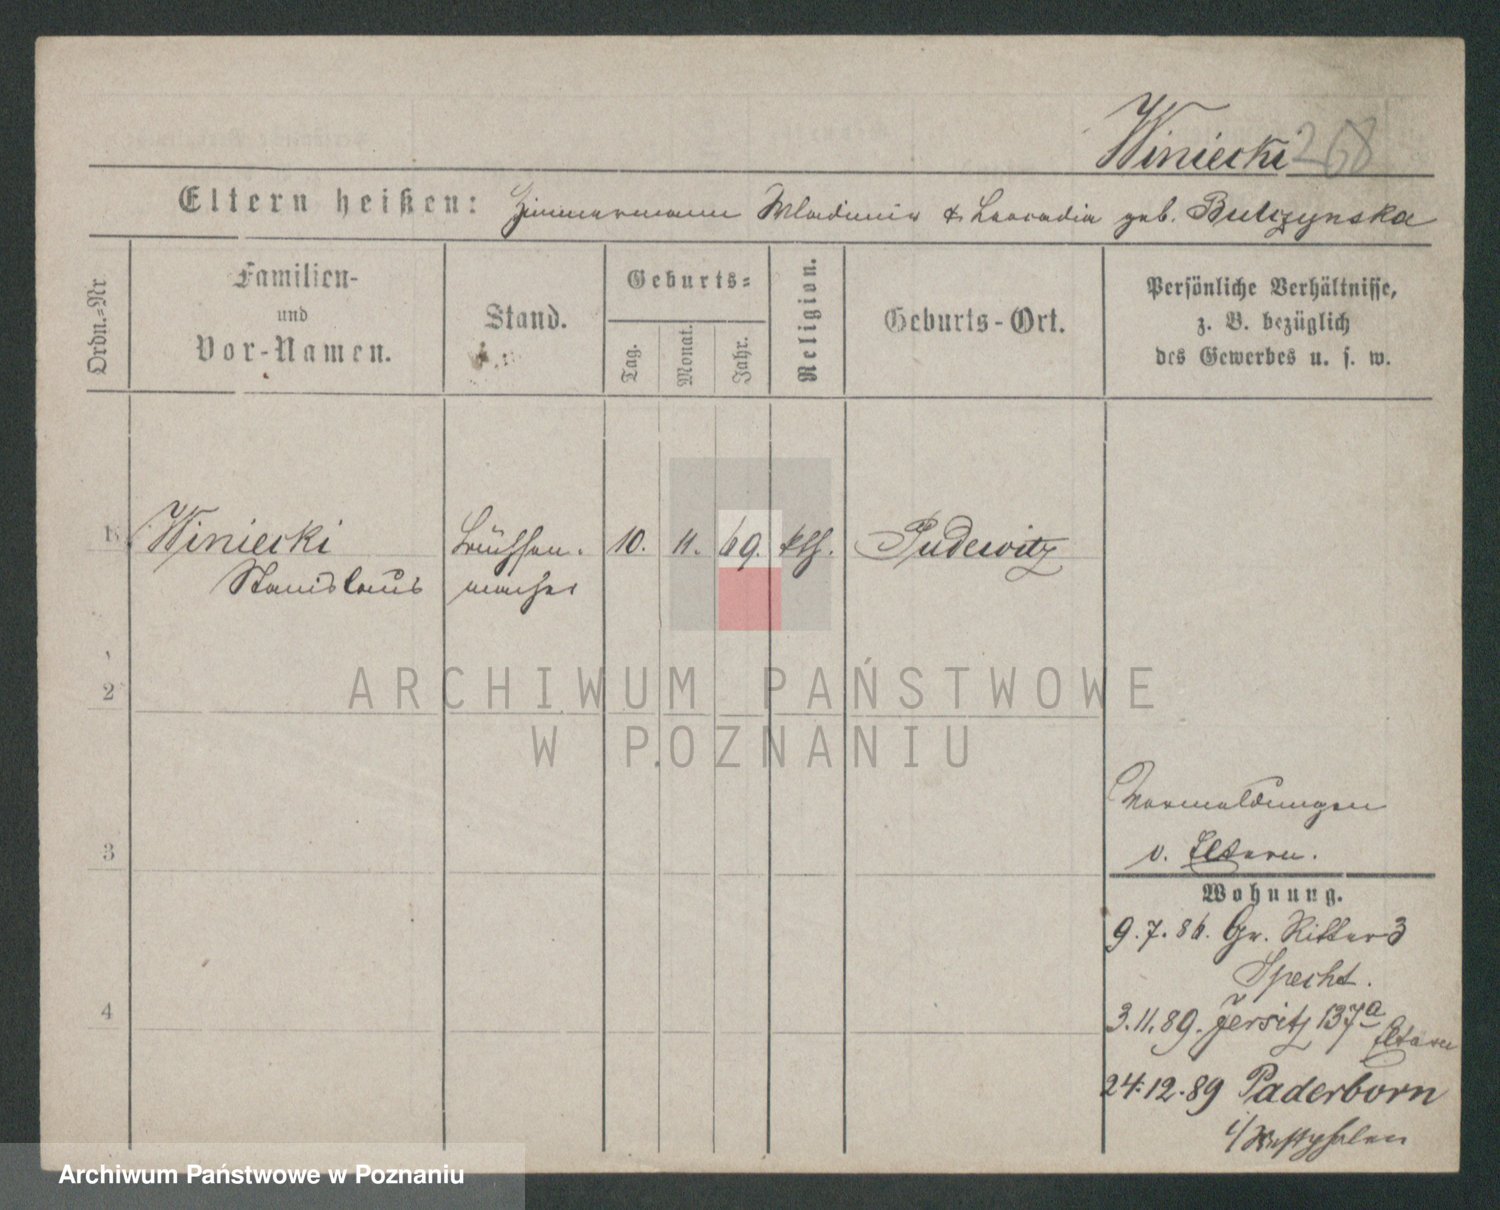 Winiecki 268
Eltern heißen: Zimmermann Wladimir & Leocadia geb. Bulczynska
Ordn.=Nr
Familien-
und
Vor-Namen.
Stand.
Geburts=
Tag.
Monat.
Jahr.
Religion.
Geburts-Ort.
Persönliche Verhältnisse,
z. B. bezüglich
des Gewerbes u. s. w.
1 Winiecki Büchsen- 10. 11. 69. kth. Pudewitz
Stanislaus macher
2
ARCHIWUM PAŃSTWOWE
W POZNANIU
3
v. Eltern.
Wohnung.
9.7.86. Gr. Ritter 3
Specht.
3.11.89. Jersitz 137a
Eltern
4
24.12.89 Paderborn
i/Westphalen
Archiwum Państwowe w Poznaniu